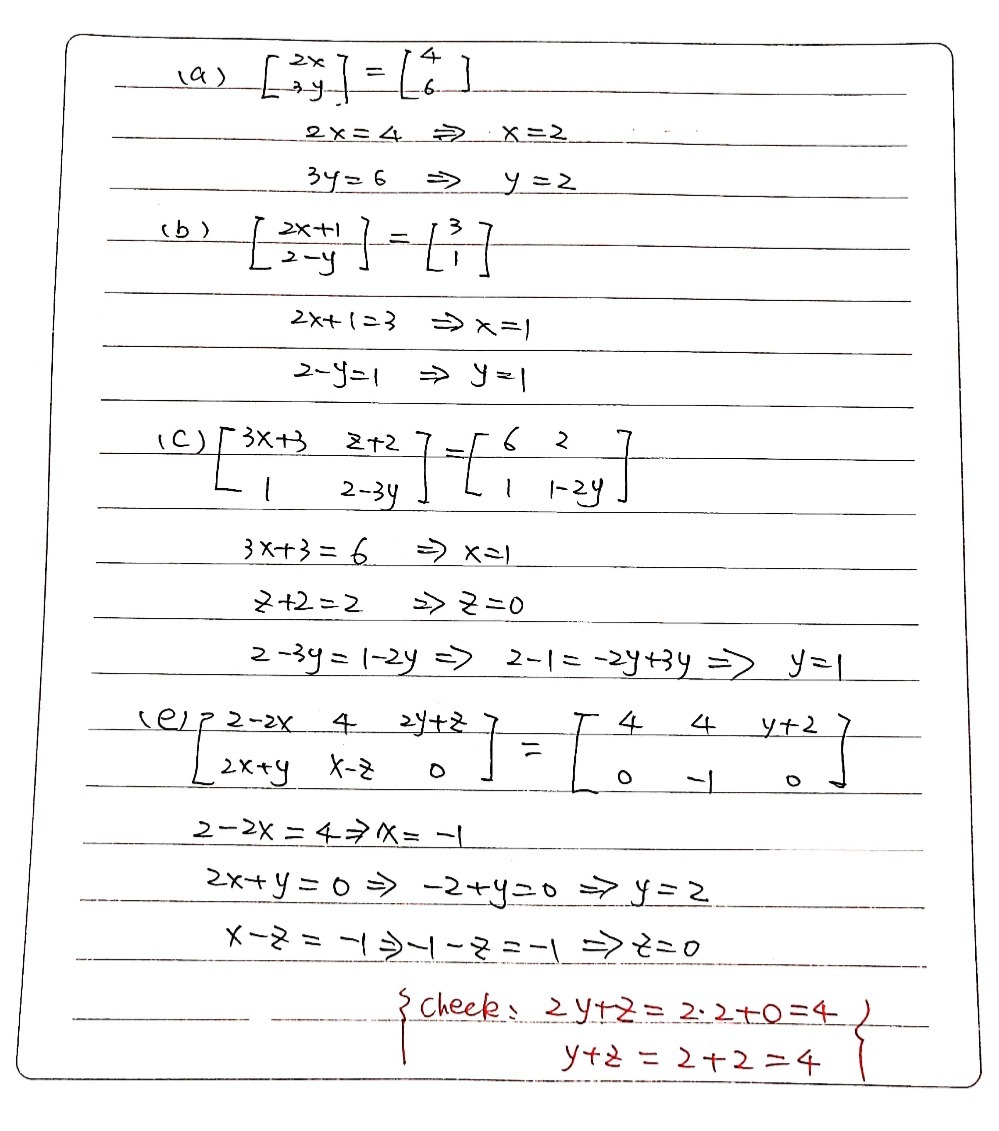 (a) [2x 3y] = [4 6]
2x = 4 ⇒ x = 2
3y = 6 ⇒ y = 2
(b) [2x+1 2-y] = [3 1]
2x+1=3 ⇒ x=1
2-y=1 ⇒ y=1
(c) [3x+3 z+2 1 2-3y] = [6 2 1 1-2y]
3x+3=6 ⇒ x=1
z+2=2 ⇒ z=0
2-3y=1-2y ⇒ 2-1=-2y+3y ⇒ y=1
(e) [2-2x 4 2y+z 2x+y x-z 0] = [4 4 y+2 0 -1 0]
2-2x=4 ⇒ x=-1
2x+y=0 ⇒ -2+y=0 ⇒ y=2
x-z=-1 ⇒ -1-z=-1 ⇒ z=0
{ Check: 2y+z=2·2+0=4 }
y+z=2+2=4